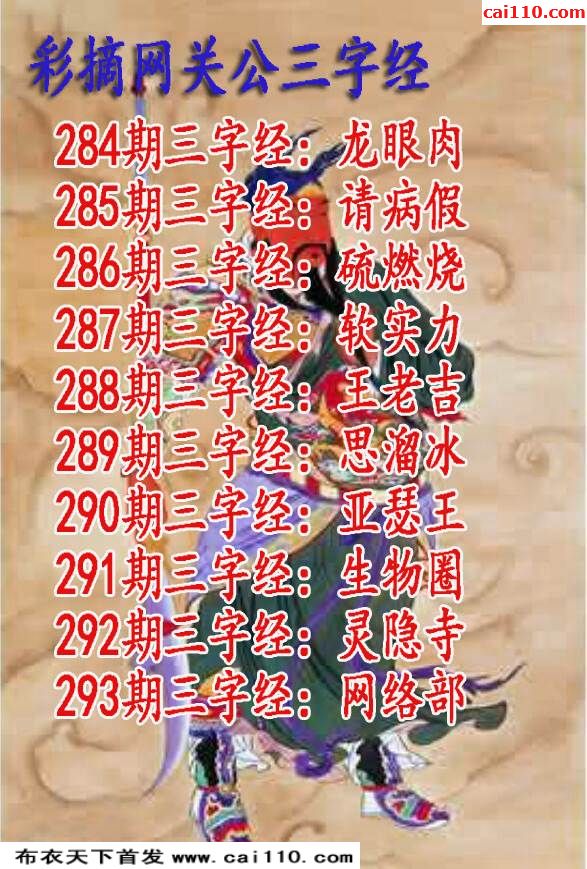 cai110.com
彩摘网关公三字经
284期三字经：龙眼肉
285期三字经：请病假
286期三字经：硫燃烧
287期三字经：软实力
288期三字经：王老吉
289期三字经：思溜冰
290期三字经：亚瑟王
291期三字经：生物圈
292期三字经：灵隐寺
293期三字经：网络部
布衣天下首发 www.cai110.com